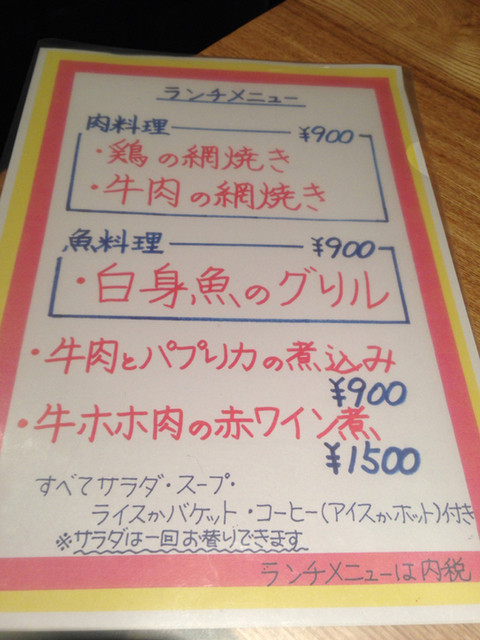 ランチメニュー
肉料理 ¥900
・鶏の網焼き
・牛肉の網焼き
魚料理 ¥900
・白身魚のグリル
・牛肉とパプリカの煮込み
¥900
・牛ホホ肉の赤ワイン煮
¥1500
すべてサラダ・スープ・
ライスかバケット・コーヒー(アイスかホット)付き
※サラダは一回お替りできます
ランチメニューは内税